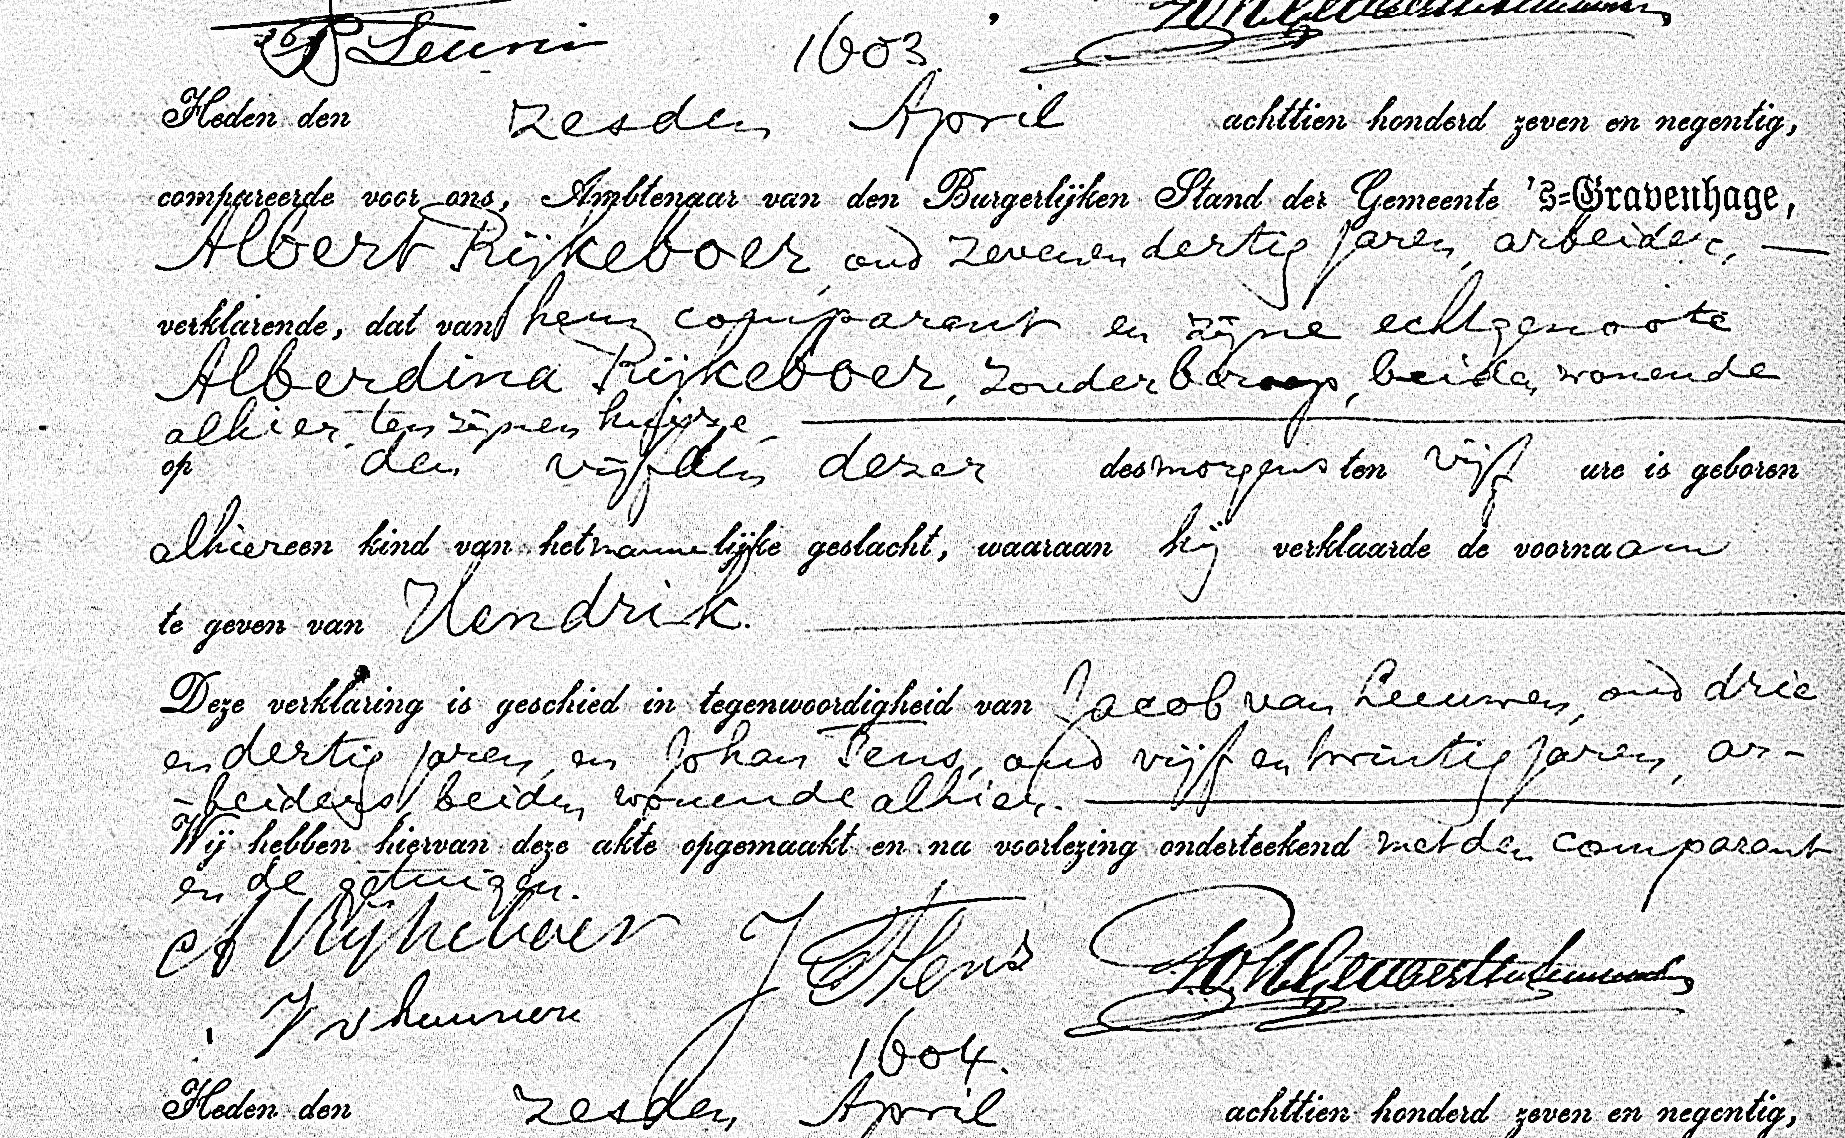 1603.
Heden den zesden April achttien honderd zeven en negentig,
compareerde voor ons, Ambtenaar van den Burgerlijken Stand der Gemeente 's-Gravenhage,
Albert Rijkeboer, oud zevenendertig jaren, arbeider,
verklarende, dat van hem comparant en zijne echtgenoote
Alberdina Rijkeboer, zonder beroep, beiden wonende
alhier, ten zijnen huize
op den vijfden dezer des morgens ten vijf ure is geboren
alhier een kind van het mannelijke geslacht, waaraan hij verklaarde de voornaam
te geven van Hendrik.
Deze verklaring is geschied in tegenwoordigheid van Jacob van Leeuwen, oud drie
en dertig jaren, en Johan Tens, oud vijf en twintig jaren, ar-
-beiders, beiden wonende alhier.
Wij hebben hiervan deze akte opgemaakt en na voorlezing onderteekend met den comparant
en de getuigen.
A Rijkeboer J Tens
J v Leeuwen
1604.
Heden den zesden April achttien honderd zeven en negentig,